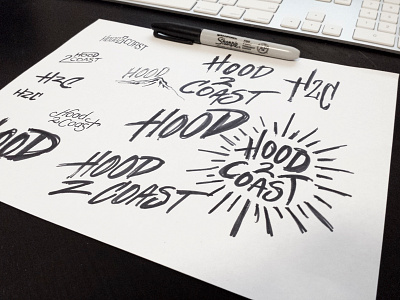 HOOD2COAST
2HOOD
COAST
H2C
H2C
Hood
2Coast
HOOD
HOOD
2
COAST
H2C
Sharpie
HOOD
HOOD
HOOD
2 COAST
HOOD
2
COAST